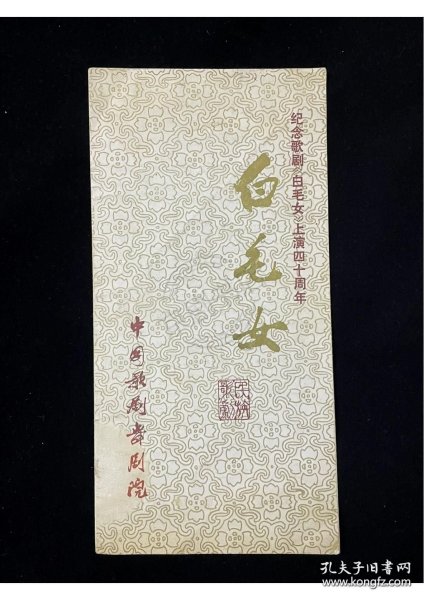 纪念歌剧《白毛女》上演四十周年
白毛女
民族
歌剧
中国歌剧舞剧院
孔夫子旧书网
www.kongfz.com